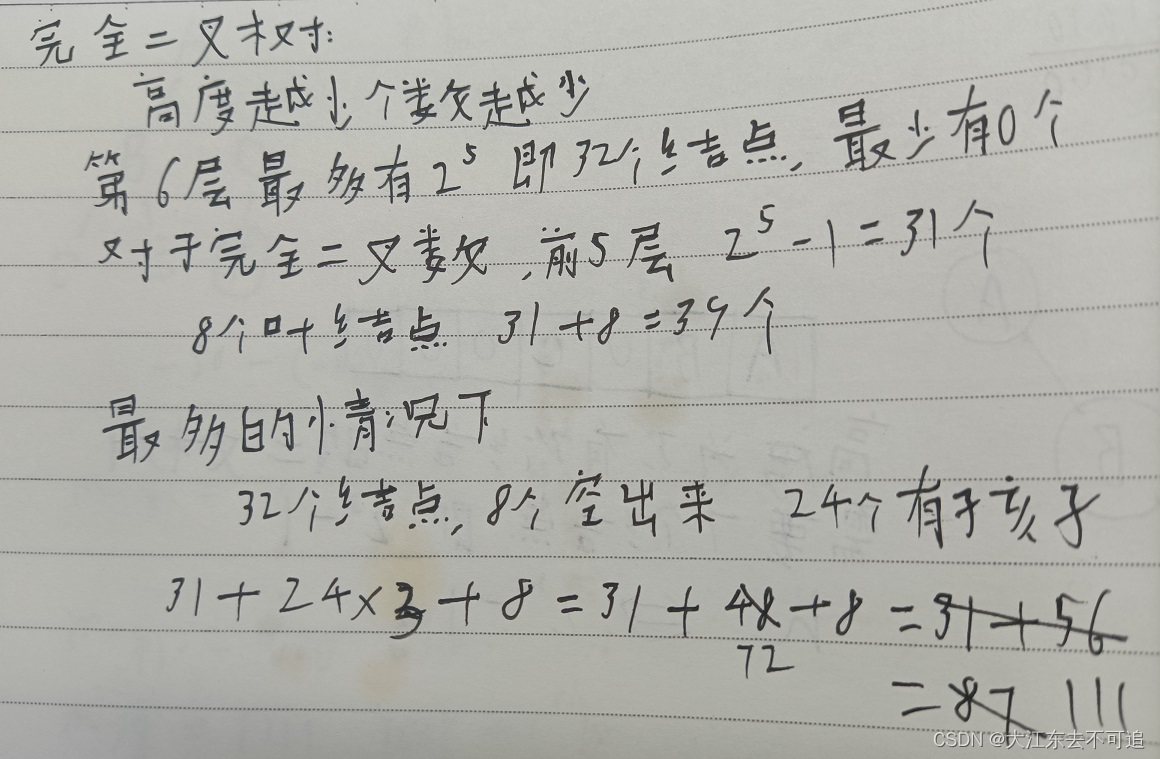 完全二叉树:
高度越少个数越少
第6层最多有2⁵即32个结点,最少有0个
对于完全二叉数,前5层 2⁵-1=31个
8个叶结点 31+8=39个
最多的情况下
32个结点,8个空出来 24个有子孩子
31+24×3+8=31+48+8=31+56
72
=87 111
CSDN @大江东去不可追